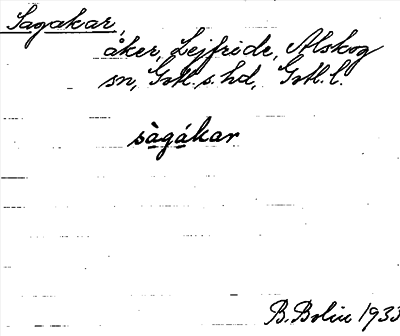 Sagakar,
åker, Lejfride, Alskog
sn, Gotl. s. hd, Gotl. l.
sàgákar
B. Bolin 1933